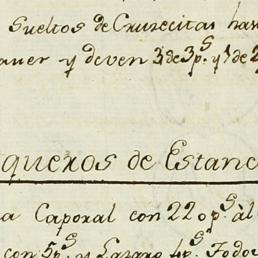 Sueltos de Cruzecitas ha
aver y deven 3 de 3 p.S y 1 de 2
queros de Estanc
a Caporal con 22 o p.S àl
con 5 p.S y Lazaro 4 p.S Todo